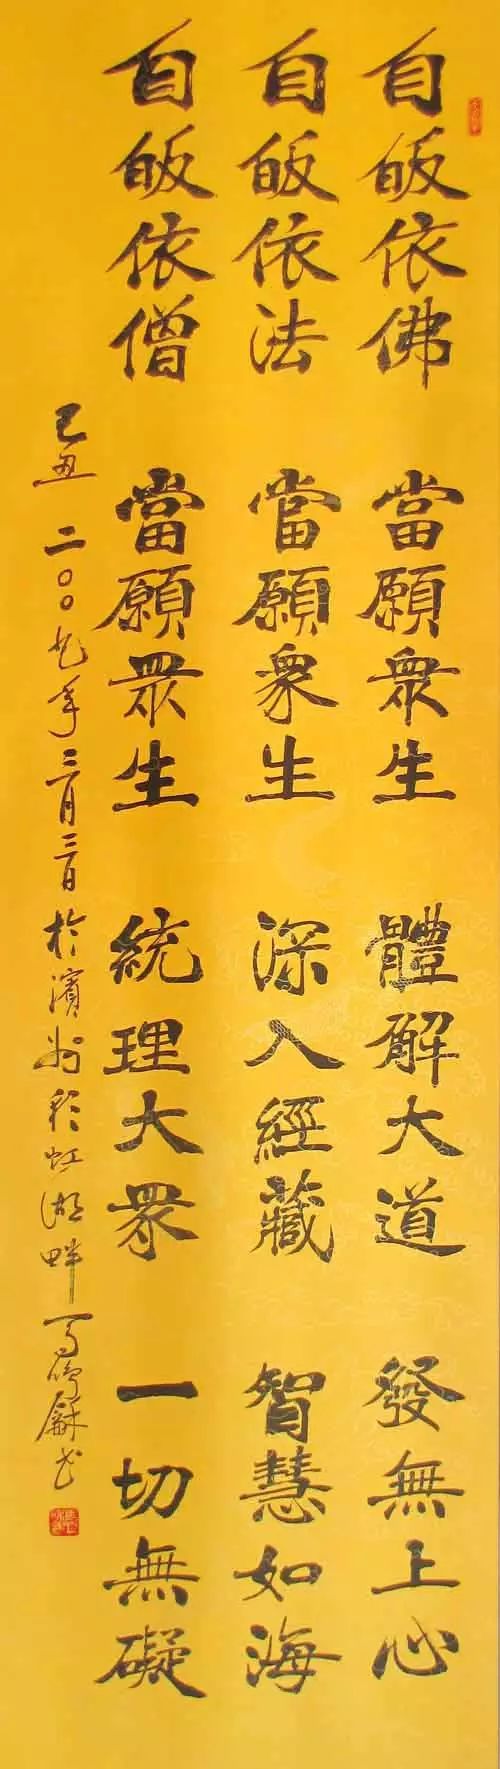 自皈依佛 當願眾生 體解大道 發無上心
自皈依法 當願眾生 深入經藏 智慧如海
自皈依僧 當願眾生 統理大眾 一切無礙
己丑 二〇〇九年三月三日於濱州彩虹湖畔 書